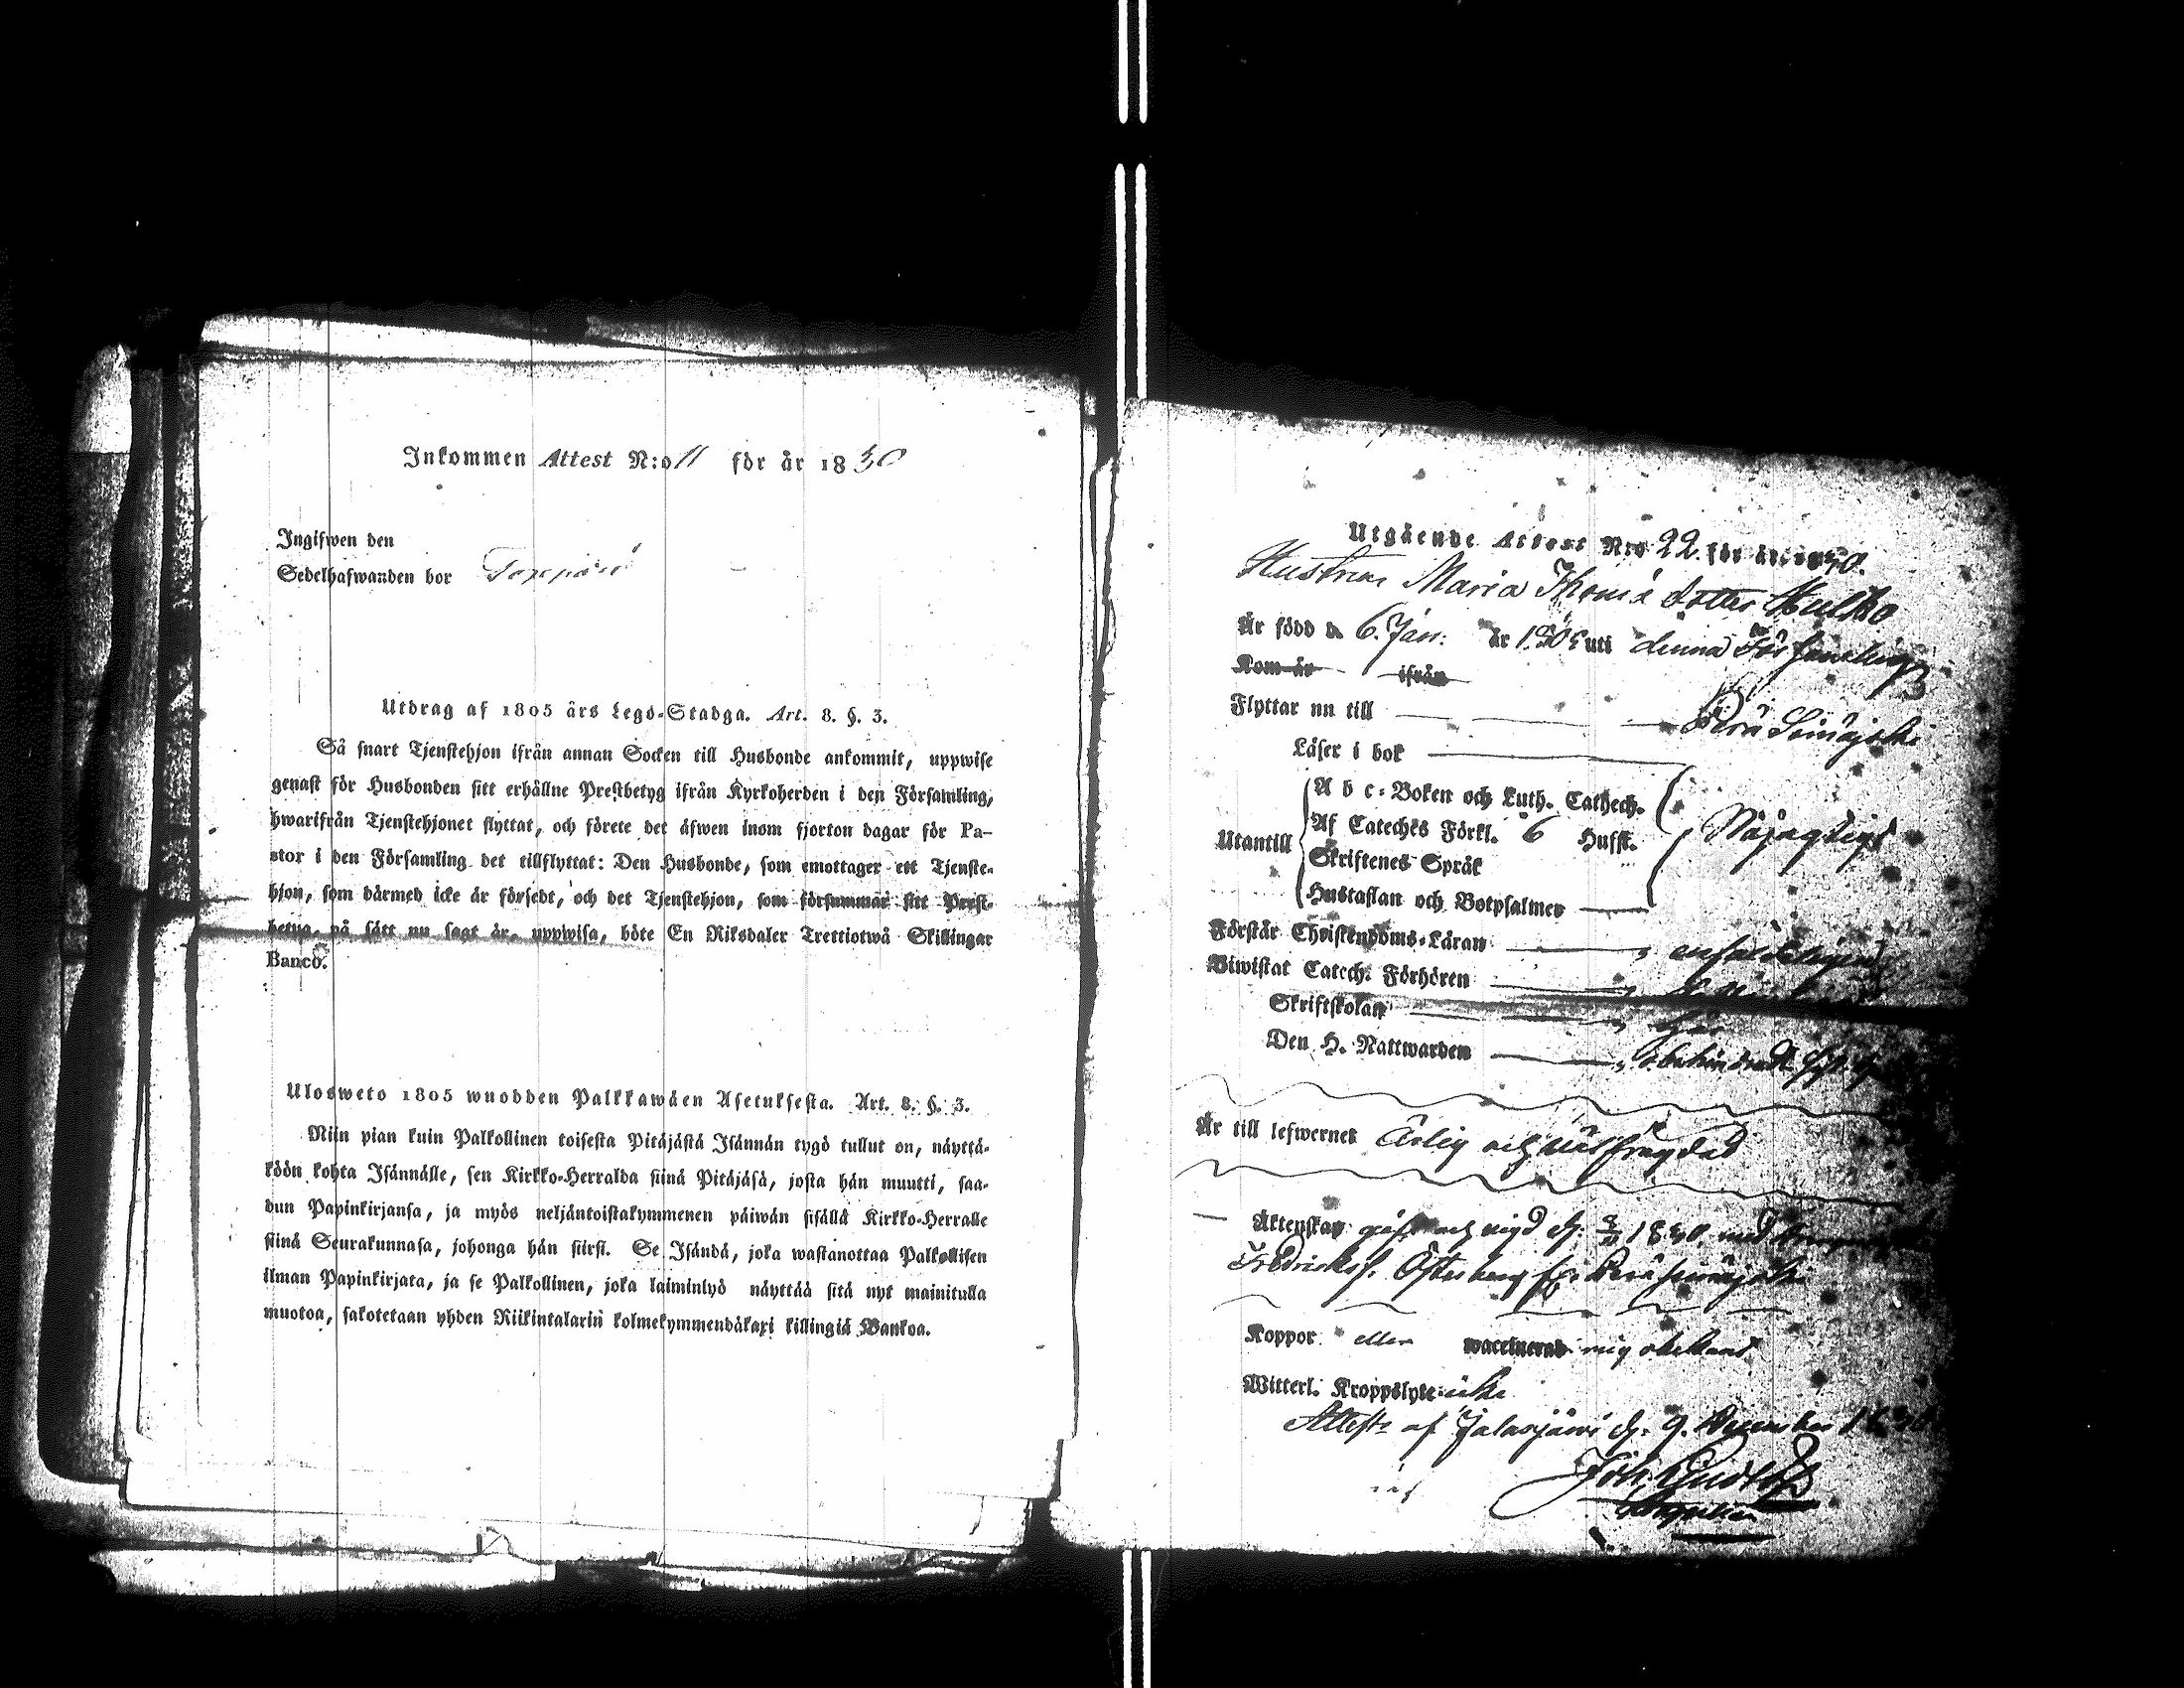 Inkommen Attest N:o 11 för år 1830
Ingifwen den
Sedelhafwanden bor
Utdrag af 1805 års Lego-Stadga. Art. 8. §. 3.
Så snart Tjenstehjon ifrån annan Socken till Husbonde ankommit, uppwise
genast för Husbonden sitt erhållne Prestbetyg ifrån Kyrkoherden i den Församling,
hwarifrån Tjenstehjonet flyttat, och förete det äfwen inom fjorton dagar för Pa-
stor i den Församling det tillflyttat: Den Husbonde, som emottager ett Tjenste-
hjon, som därmed icke är försedt, och det Tjenstehjon, som försummar sitt Prest-
betyg, på sätt nu sagt är, uppwisa, böte En Riksdaler Trettiotwå Skillingar
Banco.
Ulosweto 1805 wuodden Palkkawäen Asetuksesta. Art. 8. §. 3.
Niin pian kuin Palkollinen toisesta Pitäjästä Isännän tygö tullut on, näyttä-
köön kohta Isännälle, sen Kirkko-Herralda siinä Pitäjäsä, josta hän muutti, saa-
dun Papinkirjansa, ja myös neljäntoistakymmenen päiwän sisällä Kirkko-Herralle
siinä Seurakunnasa, johonga hän siirsi. Se Isändä, joka wastanottaa Palkollisen
ilman Papinkirjata, ja se Palkollinen, joka laiminlyö näyttää sitä nyt mainitulla
muotoa, sakotetaan yhden Riikintalarin kolmekymmendäkaxi killingiä Bankoa.
Utgående Attest N:o 22. för år 1830.
Hustrun Maria Thomä dotter Hulko
Är född d. 6. Jan: år uti denna Församling
Kom år ifrån
Flyttar nu till Perä Seinäjoki
Läser i bok
A b c-Boken och Luth. Cathech.
Utantill Af Cateches Förkl. 6 Hufst. Nöjagtigt
Skriftenes Språk
Hustaflan och Botpsalmer
Förstår Christendoms-Läran enfaldeligen
Biwistat Catech. Förhören
Skriftskolan
Den H. Nattwarden obehindradt
Är till lefwernet Ärlig och wälfrägdad
Äktenskap 1830, med
Fredriksf. Österberg Perä seinäjoki
Koppor eller waccinerad mig obekant
Witterl. Kroppslyte icke
Attest: af Jalasjärwi d. 9. December
Joh.